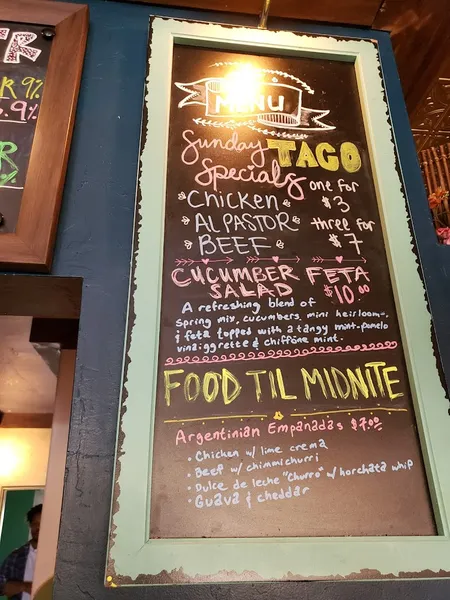 ER
R 9%
5.9%
R
MENU
Sunday TACO
Specials
one for
Chicken $3
AL PASTOR three for
BEEF $7
CUCUMBER FETA
SALAD $10.00
A refreshing blend of
Spring mix, cucumbers, mini heirloom-,
& feta topped with a tangy mint-pomelo
vinaiggrette & chiffone mint.
FOOD TIL MIDNITE
Argentinian Empanadas $7.00
• Chicken w/ lime crema
• Beef w/ chimmichurri
• Dulce de leche "Churro" w/ horchata whip
• Guava & cheddar